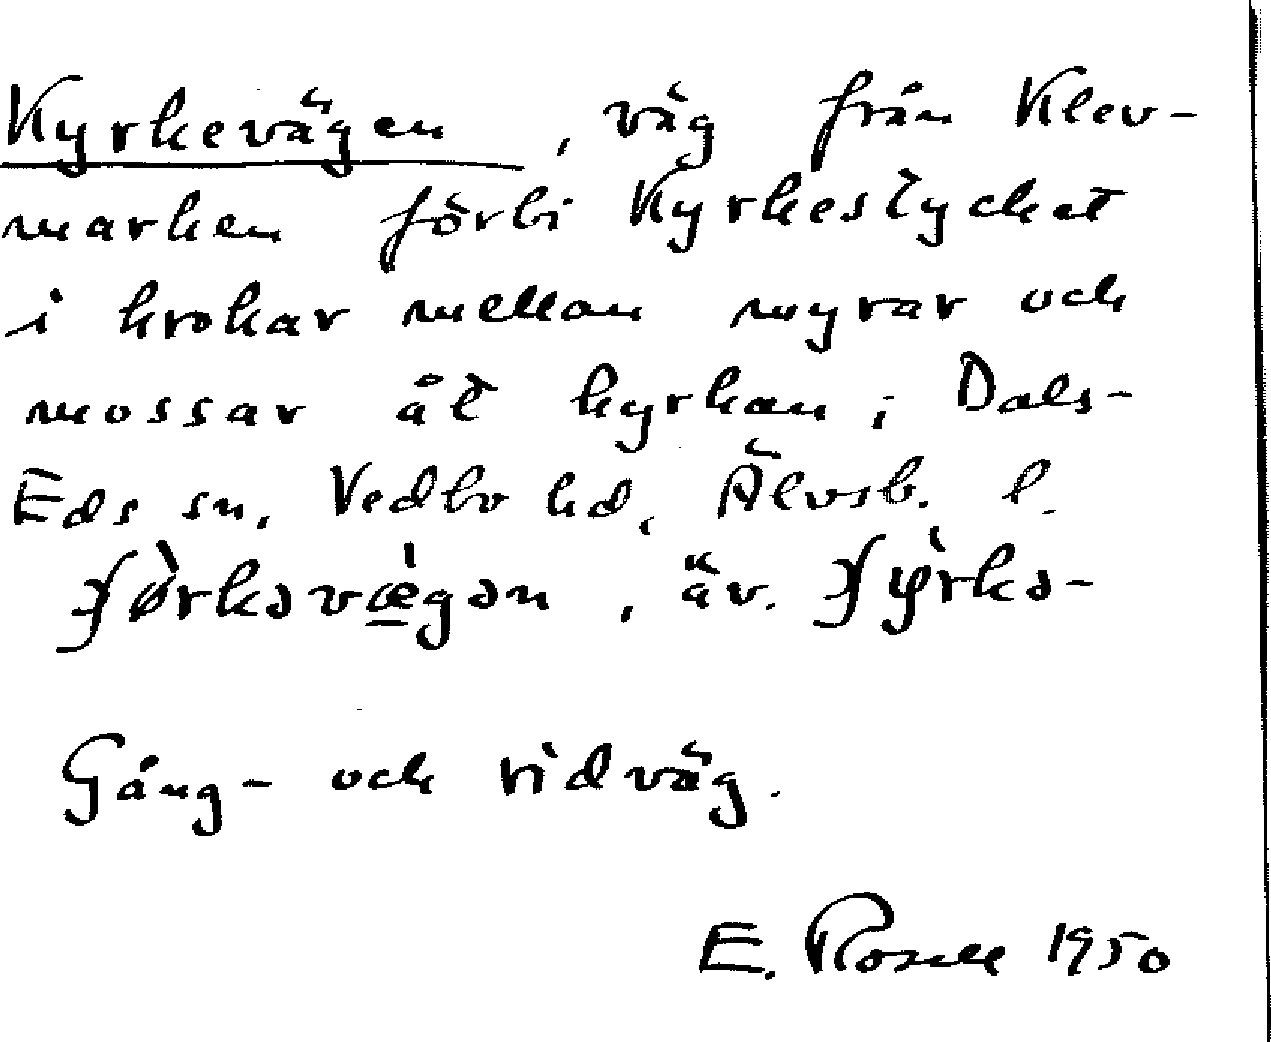 Kyrkevägen, väg från Klev-
marken förbi Kyrkestycket
i krokar mellan myrar och
mossar åt kyrkan i Dals-
Eds sn, Vedbo hd, Älvsb. l.
ʃø̀rkəvæ̲̀gən, äv. ʃỳrkə-
Gång- och ridväg.
E. Rosell 1950